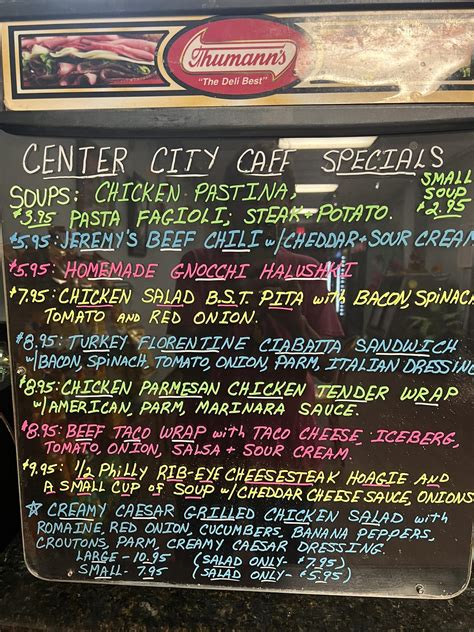 Thumann's
"The Deli Best"
CENTER CITY CAFE SPECIALS
SOUPS: CHICKEN PASTINA,
SMALL
SOUP
$2.95
$3.95 PASTA FAGIOLI, STEAK+POTATO.
$5.95: JEREMY'S BEEF CHILI w/CHEDDAR+SOUR CREAM
$5.95: HOMEMADE GNOCCHI HALUSHKI
$7.95: CHICKEN SALAD B.S.T. PITA with BACON, SPINAC
TOMATO AND RED ONION.
$8.95: TURKEY FLORENTINE CIABATTA SANDWICH
w/BACON, SPINACH, TOMATO, ONION, PARM, ITALIAN DRESSING
$8.95: CHICKEN PARMESAN CHICKEN TENDER WRAP
w/AMERICAN, PARM, MARINARA SAUCE.
$8.95: BEEF TACO WRAP with TACO CHEESE, ICEBERG,
TOMATO, ONION, SALSA + SOUR CREAM.
$9.95: 1/2 PHILLY RIB-EYE CHEESESTEAK HOAGIE AND
A SMALL CUP OF SOUP w/CHEDDAR CHEESE SAUCE, ONIONS
☆ CREAMY CAESAR GRILLED CHICKEN SALAD with
ROMAINE, RED ONION, CUCUMBERS, BANANA PEPPERS,
CROUTONS, PARM, CREAMY CAESAR DRESSING.
LARGE - 10.95 (SALAD ONLY- $7.95)
SMALL- 7.95 (SALAD ONLY- $5.95)